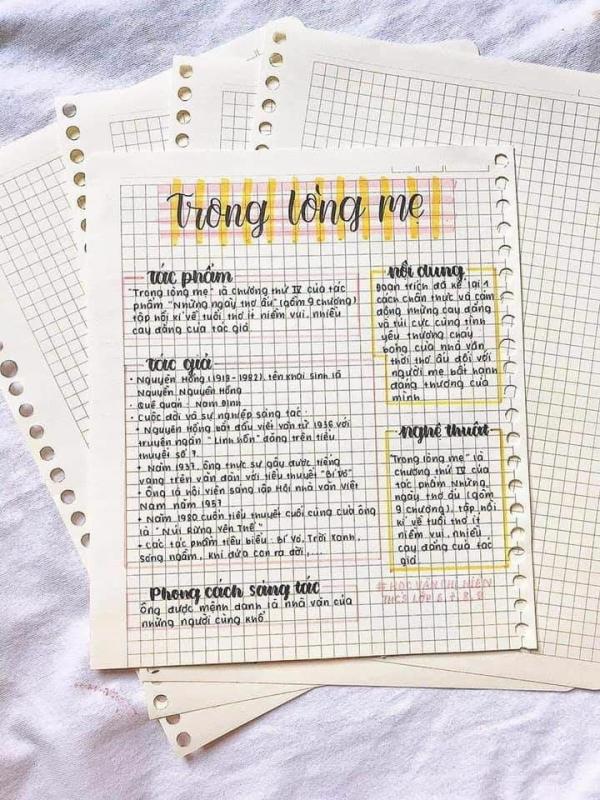 Trong lòng mẹ
tác phẩm
"Trong lòng mẹ" là chương thứ IV của tác
phẩm "Những ngày thơ ấu" (gồm 9 chương)
tập hồi kí về tuổi thơ ít niềm vui, nhiều
cay đắng của tác giả
tác giả
• Nguyên Hồng (1918 - 1982), tên khai sinh là
Nguyễn Nguyên Hồng
• Quê quán: Nam Định
• Cuộc đời và sự nghiệp sáng tác:
+ Nguyên Hồng bắt đầu viết văn từ 1936 với
truyện ngắn "Linh hồn" đăng trên tiểu
thuyết số 7
+ Năm 1937, ông thực sự gây được tiếng
vang trên văn đàn với tiểu thuyết "Bỉ vỏ"
+ Ông là hội viên sáng lập Hội nhà văn Việt
Nam năm 1957
+ Năm 1980 cuốn tiểu thuyết cuối cùng của ông
là "Núi Rừng Yên Thế"
+ Các tác phẩm tiêu biểu: Bỉ Vỏ, Trời Xanh,
Sóng ngầm, Khi đứa con ra đời,...
Phong cách sáng tác
Ông được mệnh danh là nhà văn của
những người cùng khổ
nội dung
Đoạn trích đã kể lại 1
cách chân thực và cảm
động những cay đắng
và tủi cực cùng tình
yêu thương cháy
bỏng của nhà văn
thời thơ ấu đối với
người mẹ bất hạnh
đáng thương của
mình
nghệ thuật
"Trong lòng mẹ" là
chương thứ IV của
tác phẩm Những
ngày thơ ấu (gồm
9 chương), tập hồi
kí về tuổi thơ ít
niềm vui, nhiều
cay đắng của tác
giả
#HỌC VĂN CHỊ HIÊN
THCS LỚP 6, 7, 8, 9